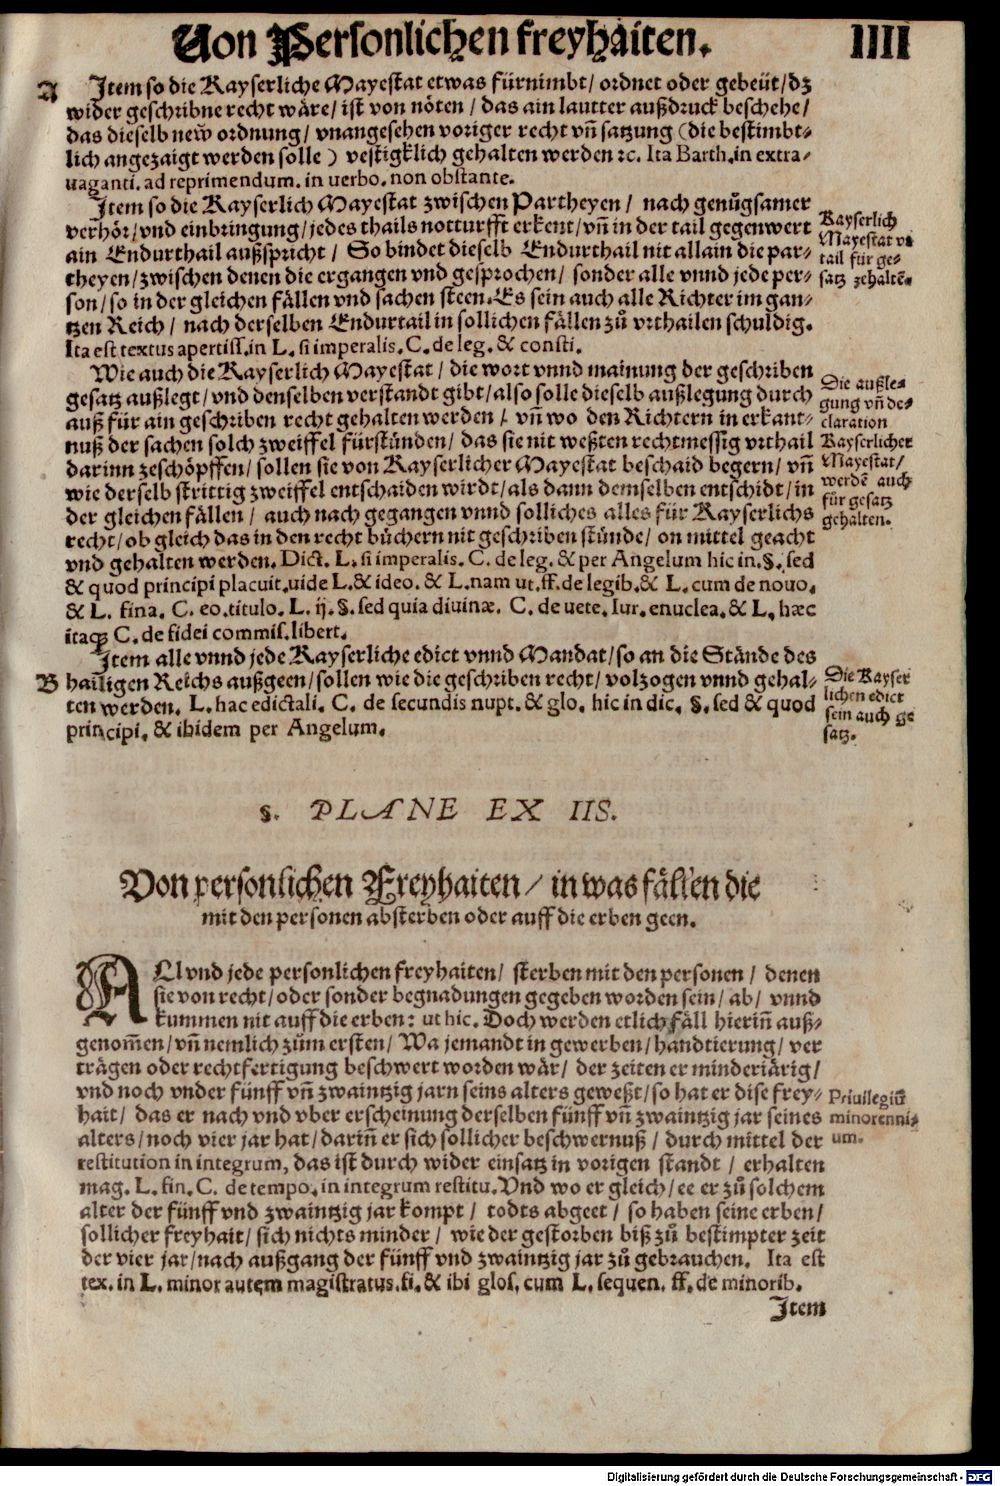 Von Personlichen freyhaiten. IIII
A Item so die Kayserliche Mayestat etwas fürnimbt/ ordnet oder gebeüt/ dz
wider geschribne recht wäre/ ist von nöten/ das ain lautter außdruck beschehe/
das dieselb new ordnung/ vnangesehen voriger recht vñ satzung (die bestimbt-
lich angezaigt werden solle) vestigklich gehalten werden ꝛc. Ita Barth. in extra-
uaganti. ad reprimendum. in uerbo. non obstante.
Item so die Kayserlich Mayestat zwischen Partheyen/ nach genůgsamer
verhör/ vnd einbringung/ jedes thails notturfft erkent/ vñ in der tail gegenwert
ain Endurthail außspricht/ So bindet dieselb Endurthail nit allain die par-
theyen/ zwischen denen die ergangen vnd gesprochen/ sonder alle vnnd jede per-
son/ so in der gleichen fällen vnd sachen steen. Es sein auch alle Richter im gan-
tzen Reich/ nach derselben Endurtail in sollichen fällen zů vrthailen schuldig.
Ita est textus apertiss. in L. si imperalis. C. de leg. & consti.
Kayserlich
Mayestat vr
tail für ge-
satz zehaltẽ.
Wie auch die Kayserlich Mayestat/ die wort vnnd mainung der geschriben
gesatz außlegt/ vnd denselben verstandt gibt/ also solle dieselb außlegung durch
auß für ain geschriben recht gehalten werden/ vñ wo den Richtern in erkant-
nuß der sachen solch zweiffel fürstünden/ das sie nit weßten rechtmessig vrthail
darinn zeschöpffen/ sollen sie von Kayserlicher Mayestat beschaid begern/ vñ
wie derselb strittig zweiffel entschaiden wirdt/ als dann demselben entschidt/ in
der gleichen fällen/ auch nach gegangen vnnd solliches alles für Kayserlichs
recht/ ob gleich das in den recht büchern nit geschriben stünde/ on mittel geacht
vnd gehalten werden. Dict. L. si imperalis. C. de leg. & per Angelum hic in. §. sed
& quod principi placuit. uide L. & ideo. & L. nam ut. ff. de legib. & L. cum de nouo.
& L. fina. C. eo. titulo. L. ij. §. sed quia diuinæ. C. de uete. Iur. enuclea. & L. hæc
itaqꝫ C. de fidei commis. libert.
Die außle-
gung vñ de-
claration
Kayserlicher
Mayestat/
werdẽ auch
für gesatz
gehalten.
Item alle vnnd jede Kayserliche edict vnnd Mandat/ so an die Stände des
B hailigen Reichs außgeen/ sollen wie die geschriben recht/ volzogen vnnd gehal-
ten werden. L. hac edictali. C. de secundis nupt. & glo. hic in dic. §. sed & quod
principi. & ibidem per Angelum.
Die Kayser
lichen edict
sein auch ge
satz.
§. PLANE EX IIS.
Von personlichen Freyhaiten/ in was fällen die
mit den personen absterben oder auff die erben geen.
All vnd jede personlichen freyhaiten/ sterben mit den personen/ denen
sie von recht/ oder sonder begnadungen gegeben worden sein/ ab/ vnnd
kummen nit auff die erben: ut hic. Doch werden etlich fäll hierinñ auß-
genom̃en/ vñ nemlich zům ersten/ Wa jemandt in gewerben/ handtierung/ ver
trägen oder rechtfertigung beschwert worden wär/ der zeiten er minderiärig/
vnd noch vnder fünff vñ zwaintzig jarn seins alters geweßt/ so hat er dise frey-
hait/ das er nach vnd vber erscheinung derselben fünff vñ zwaintzig jar seines
alters/ noch vier jar hat/ darinñ er sich sollicher beschwernuß/ durch mittel der
restitution in integrum, das ist durch wider einsatz in vorigen standt/ erhalten
mag. L. fin. C. de tempo. in integrum restitu. Vnd wo er gleich/ ee er zů solchem
alter der fünff vnd zwaintzig jar kompt/ todts abgeet/ so haben seine erben/
sollicher freyhait/ sich nichts minder/ wie der gestorben biß zů bestimpter zeit
der vier jar/ nach außgang der fünff vnd zwaintzig jar zů gebrauchen. Ita est
tex. in L. minor autem magistratus. fi. & ibi glos. cum L. sequen. ff. de minorib.
Priuilegiũ
minorenni-
um.
Item
Digitalisierung gefördert durch die Deutsche Forschungsgemeinschaft - DFG